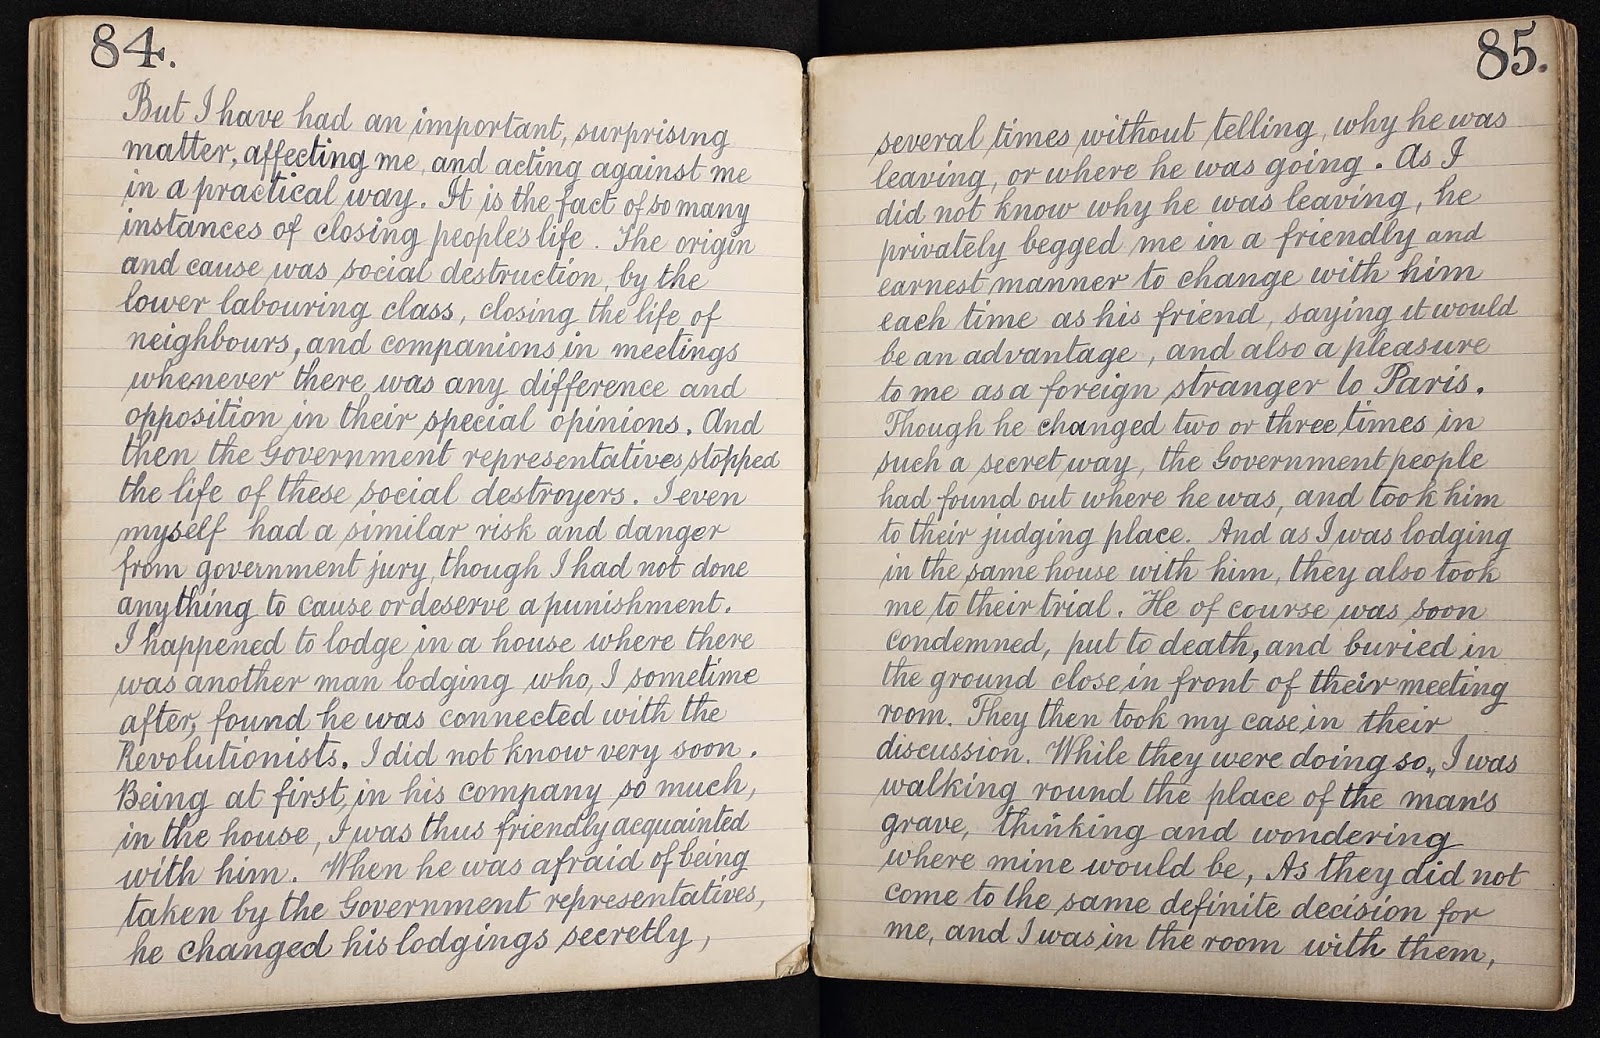 84.
But I have had an important, surprising
matter, affecting me, and acting against me
in a practical way. It is the fact of so many
instances of closing people's life. The origin
and cause was social destruction, by the
lower labouring class, closing the life of
neighbours, and companions in meetings
whenever there was any difference and
opposition in their special opinions. And
then the Government representatives stopped
the life of these social destroyers. I even
myself had a similar risk and danger
from government jury, though I had not done
anything to cause or deserve a punishment.
I happened to lodge in a house where there
was another man lodging who, I sometime
after, found he was connected with the
Revolutionists. I did not know very soon.
Being at first, in his company so much,
in the house, I was thus friendly acquainted
with him. When he was afraid of being
taken by the Government representatives,
he changed his lodgings secretly,
85.
several times without telling, why he was
leaving, or where he was going. As I
did not know why he was leaving, he
privately begged me in a friendly and
earnest manner to change with him
each time as his friend, saying it would
be an advantage, and also a pleasure
to me as a foreign stranger to Paris.
Though he changed two or three times in
such a secret way, the Government people
had found out where he was, and took him
to their judging place. And as I was lodging
in the same house with him, they also took
me to their trial. He of course was soon
condemned, put to death, and buried in
the ground close in front of their meeting
room. They then took my case in their
discussion. While they were doing so,, I was
walking round the place of the man's
grave, thinking and wondering
where mine would be, As they did not
come to the same definite decision for
me, and I was in the room with them,